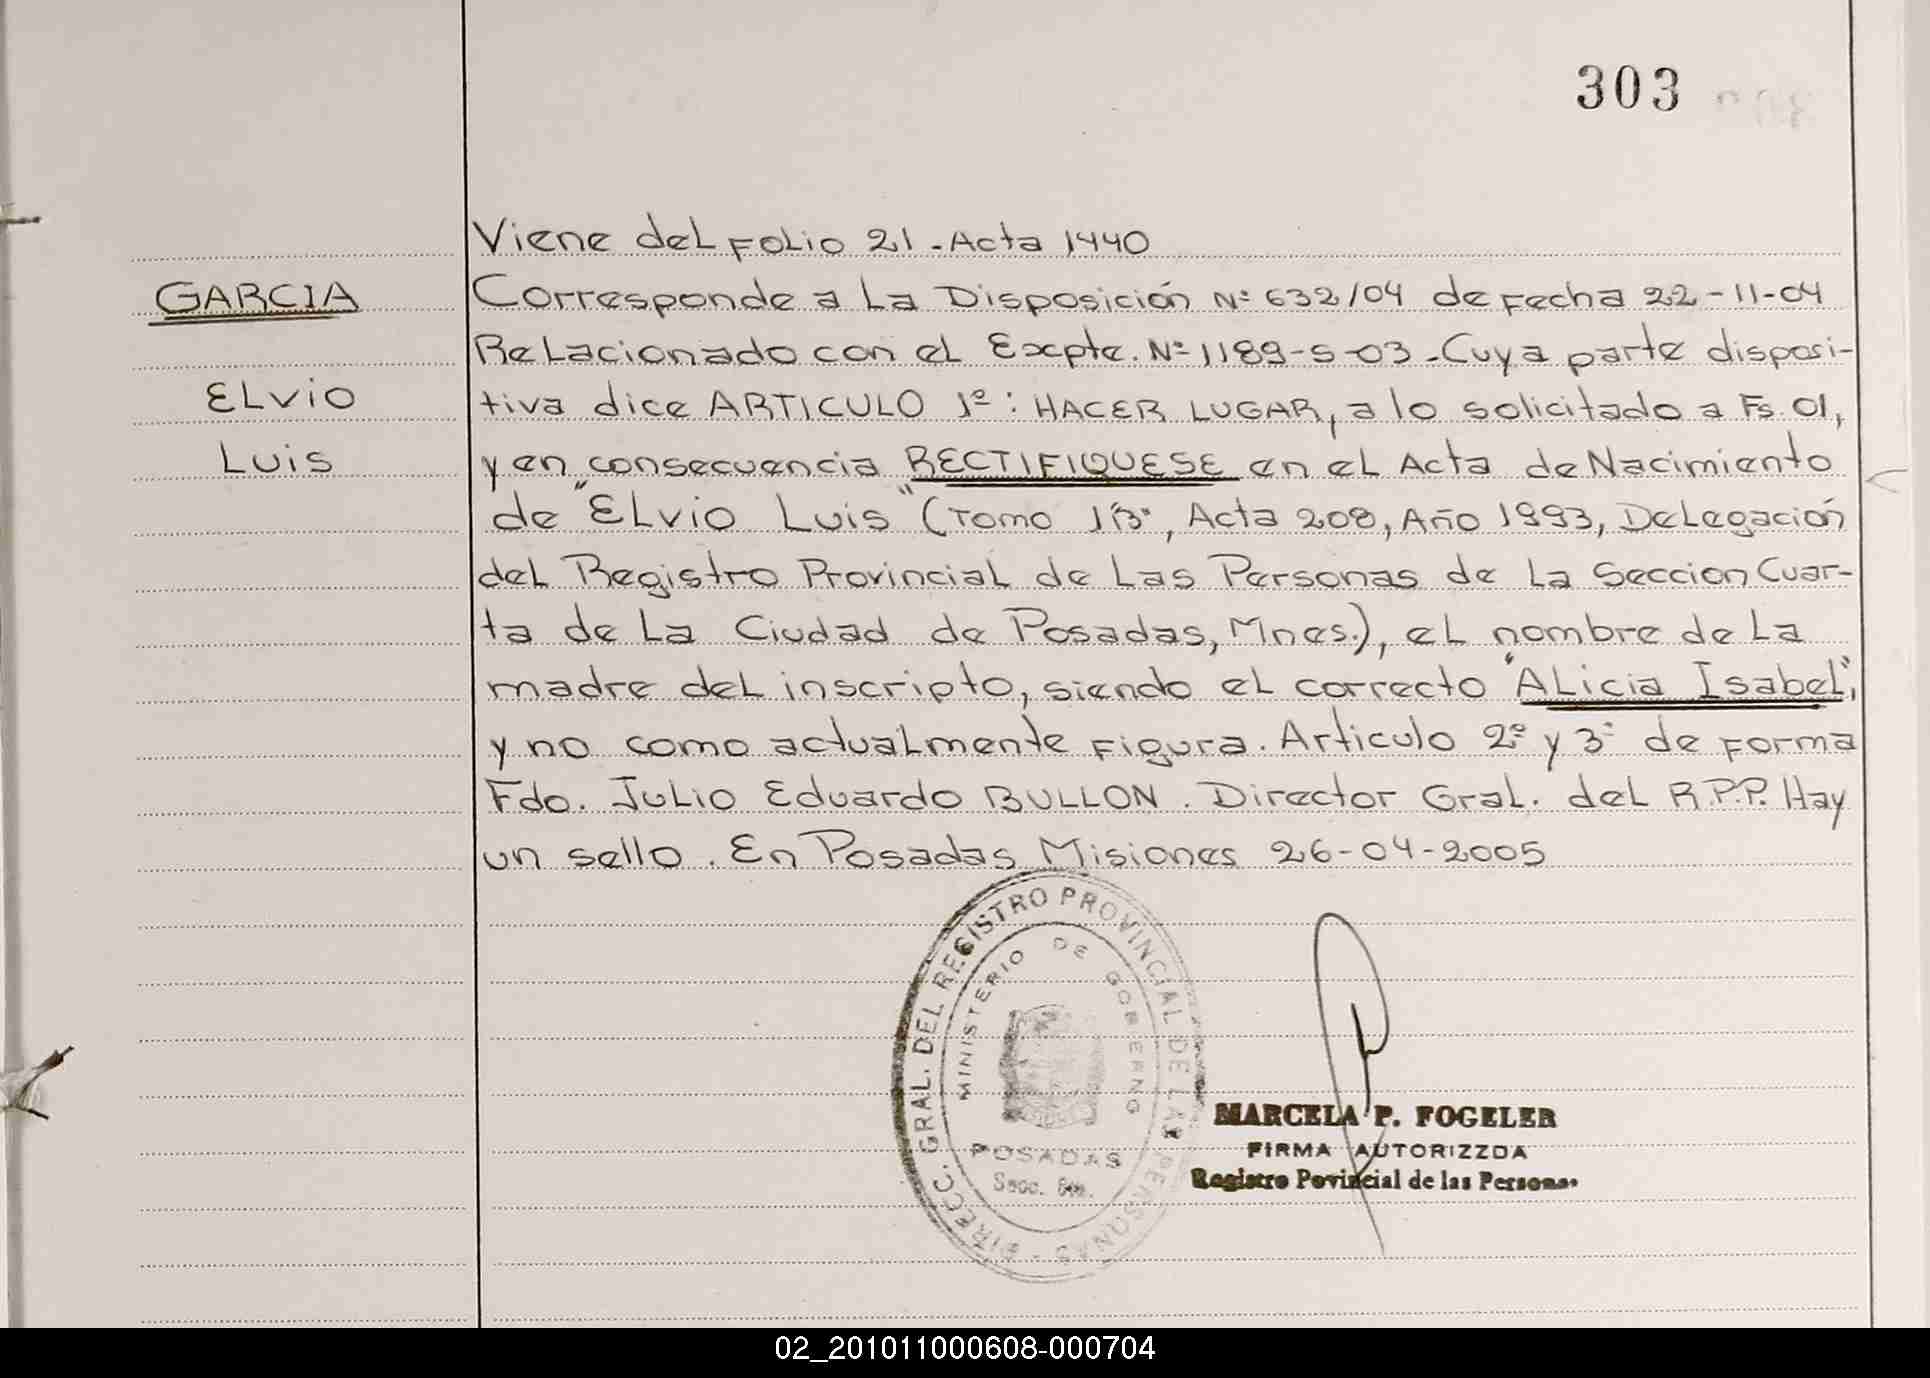 303
Viene del folio 21 - Acta 1440
GARCIA
Corresponde a la Disposición Nº 632/04 de fecha 22-11-04
Relacionado con el Excpte. Nº 1189-S-03 - Cuya parte disposi-
ELvio
tiva dice ARTICULO 1º: HACER LUGAR, a lo solicitado a Fs. 01,
Luis
y en consecuencia RECTIFIQUESE en el Acta de Nacimiento
de "Elvio Luis" (Tomo 1, Acta 208, Año 1993, Delegación
del Registro Provincial de las Personas de la Seccion Cuar-
ta de la Ciudad de Posadas, Mnes.), el nombre de la
madre del inscripto, siendo el correcto "Alicia Isabel",
y no como actualmente figura. Articulo 2º y 3º de forma
Fdo. Julio Eduardo BULLON. Director Gral. del R.P.P. Hay
un sello. En Posadas Misiones 26-04-2005
DIRECC. GRAL. DEL REGISTRO PROVINCIAL DE LAS PERSONAS
MINISTERIO DE GOBIERNO
POSADAS
Secc.
MARCELA P. FOGELER
FIRMA AUTORIZZDA
Registro Povincial de las Personas
02_201011000608-000704